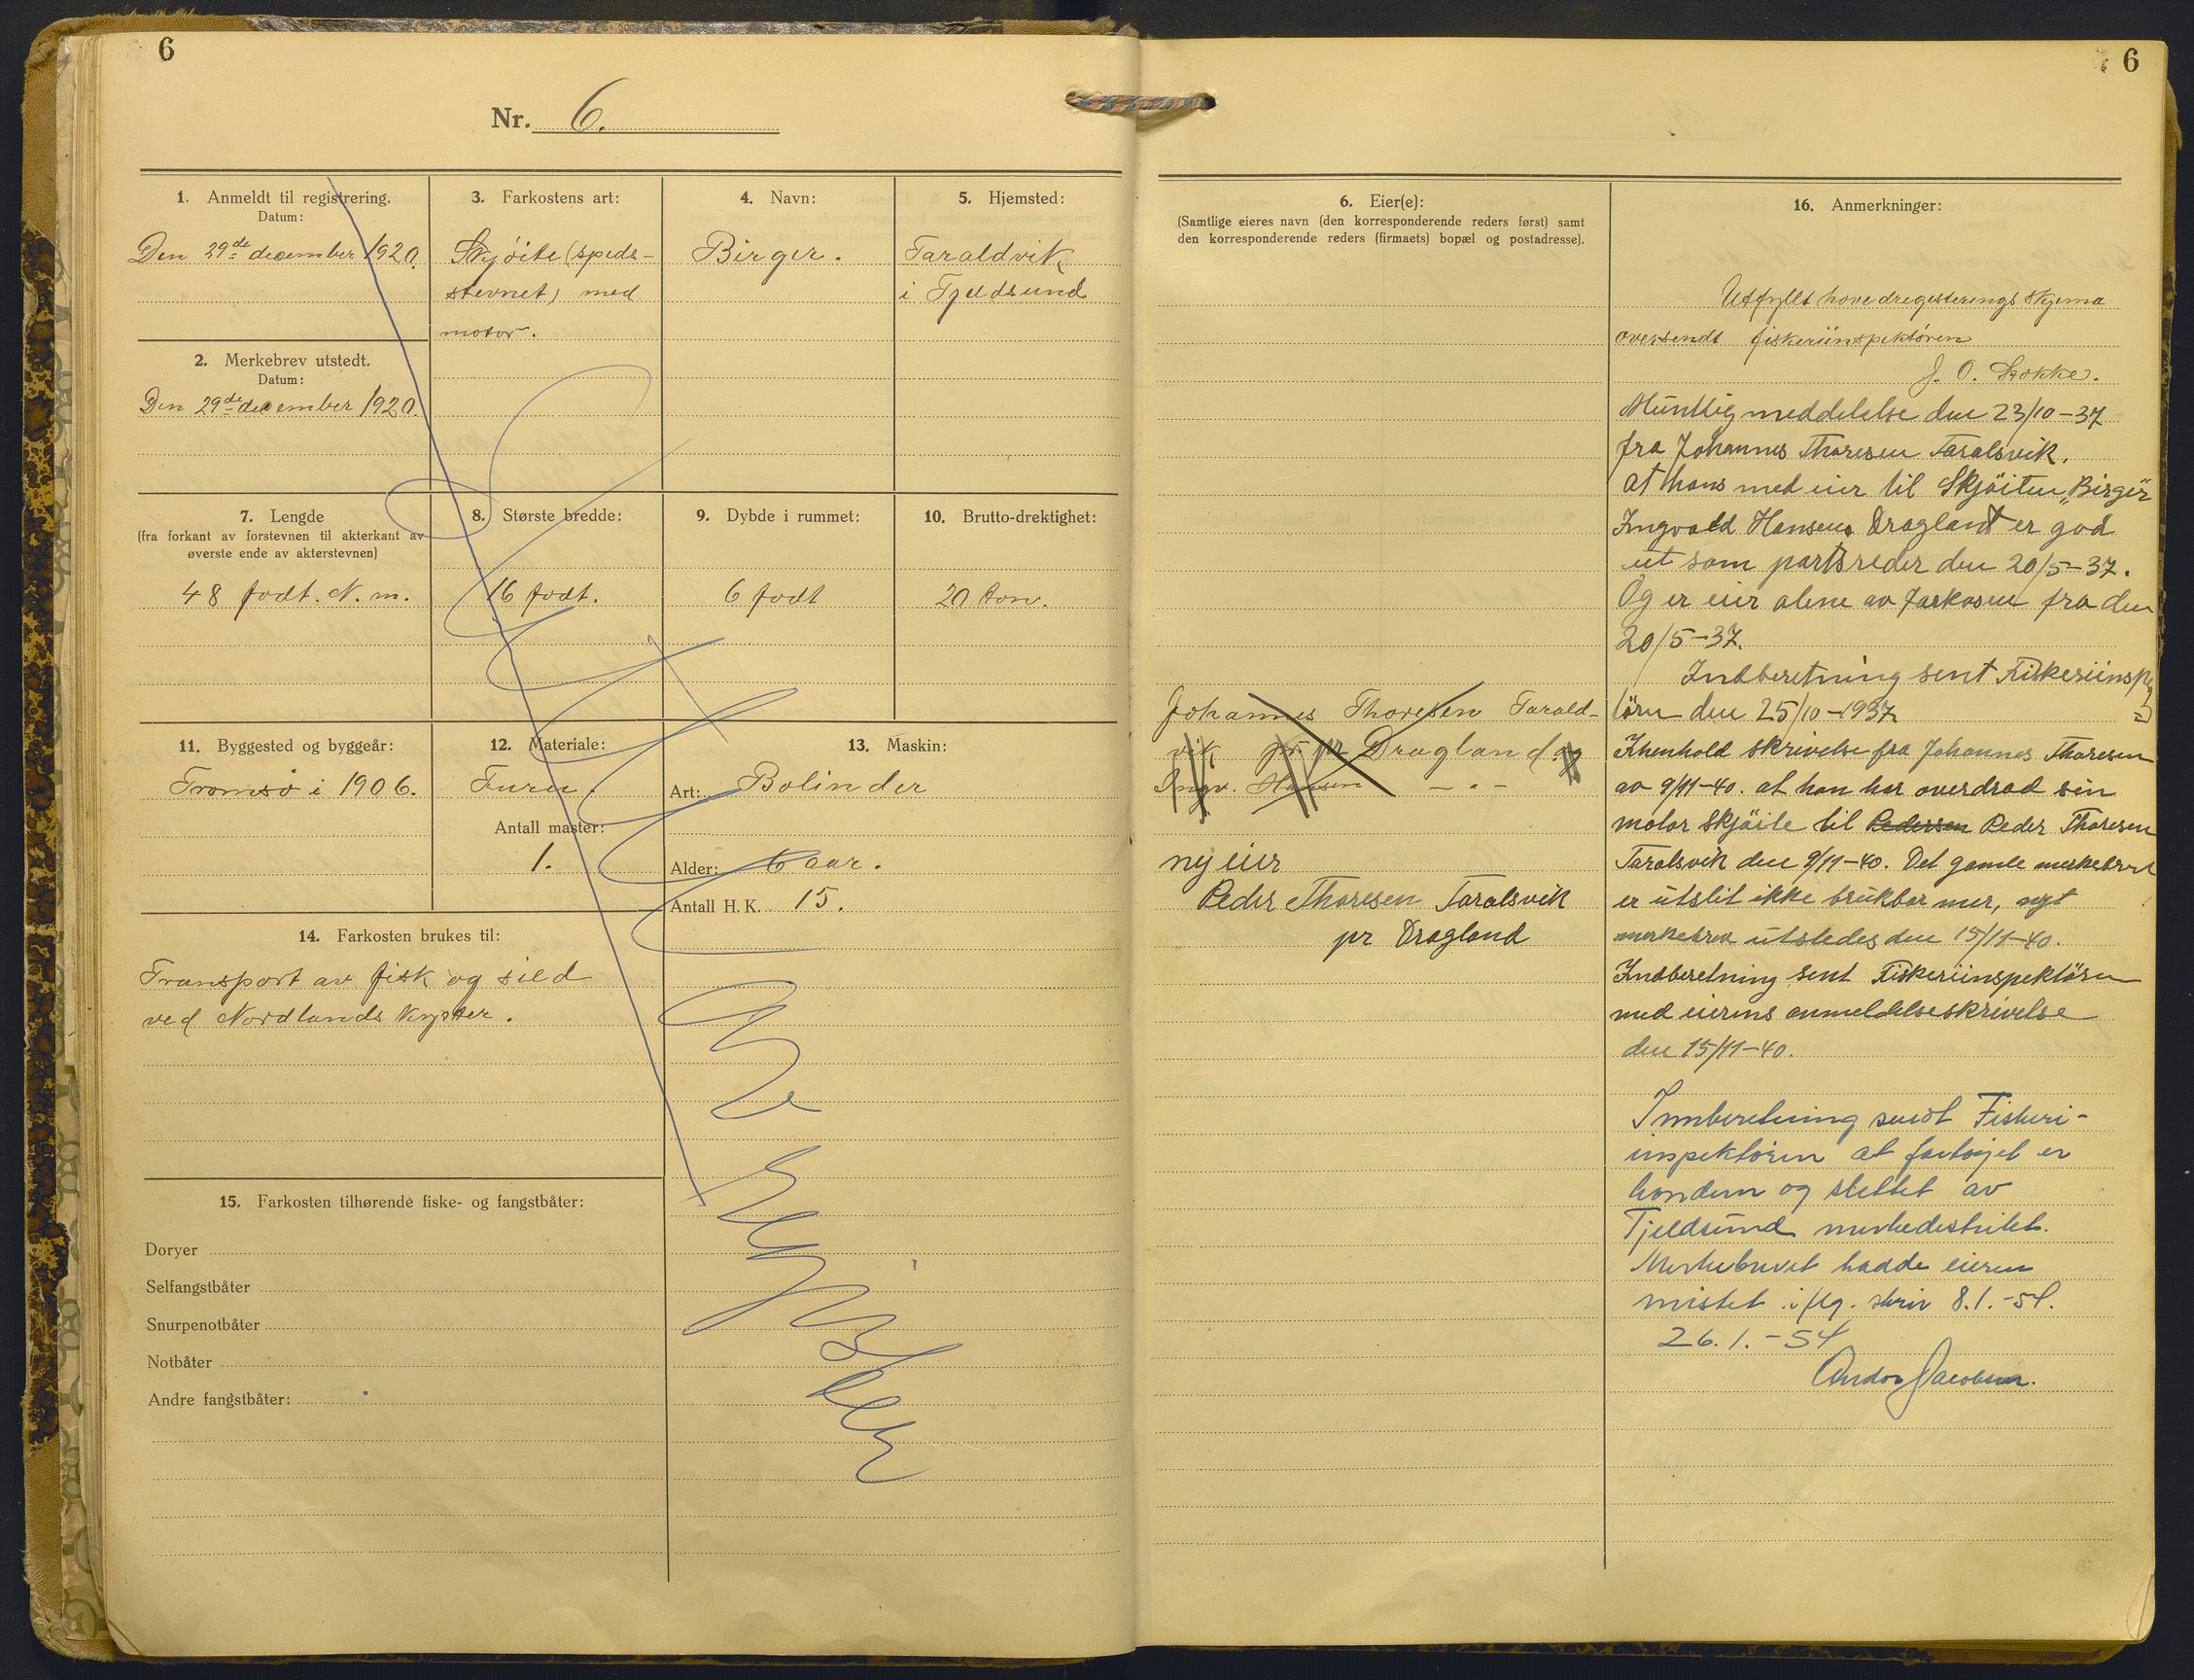 6
Nr. 6.
1. Anmeldt til registrering.
Datum:
Den 29de december 1920.
2. Merkebrev utstedt.
Datum:
Den 29de december 1920.
3. Farkostens art:
Skjöite (spids-
stevnet) med
motor.
4. Navn:
Birger.
5. Hjemsted:
Taraldvik
i Tjeldsund
7. Lengde
(fra forkant av forstevnen til akterkant av
øverste ende av akterstevnen)
48 fodt. N. m.
8. Største bredde:
16 fodt.
9. Dybde i rummet:
6 fodt
10. Brutto-drektighet:
20 ton.
11. Byggested og byggeår:
Tromsö i 1906.
12. Materiale:
Furu.
Antall master:
1.
13. Maskin:
Art: Bolinder
Alder: 6 aar.
Antall H. K. 15.
14. Farkosten brukes til:
Transport av fisk og sild
ved Nordlands kyster.
15. Farkosten tilhørende fiske- og fangstbåter:
Doryer
Selfangstbåter
Snurpenotbåter
Notbåter
Andre fangstbåter:
6
6. Eier(e):
(Samtlige eieres navn (den korresponderende reders først) samt
den korresponderende reders (firmaets) bopæl og postadresse).
Johannes Thoresen Tarald-
vik pr Dragland og
Ingv. Hansen - " -
ny eier
Peder Thoresen Taralsvik
pr Dragland
16. Anmerkninger:
Utfyllt hovedregisterings skjema
oversendt fiskeriinspektøren
J. O. Lökke.
Muntlig meddelelse den 23/10-37
fra Johannes Thoresen Taralsvik.
At hans med eier til Skjöiten "Birger"
Ingvald Hansen Dragland er god
ut som partsreder den 20/5-37.
Og er eier alene av farkosen fra den
20/5-37.
Indberetning sent Fiskeriinspek
tören den 25/10-1937
I henhold skrivelse fra Johannes Thoresen
av 9/11-40. at han har overdrad sin
motor skjöite til Pedersen Peder Thoresen
Taralsvik den 9/11-40. Det gamle merkebrev
er utslit ikke brukbar mer, nyt
merkebrev utstedes den 15/11-40.
Indberetning sent Fiskeriinspektören
med eierens anmeldelseskrivelse
den 15/11-40.
Innberetning sendt Fiskeri-
inspektören at fartöjet er
kondem og slettet av
Tjeldsund merkedistrikt.
Merkebrevet hadde eieren
mistet iflg. skriv 8.1.-54.
26.1.-54
Andor Jacobsen.